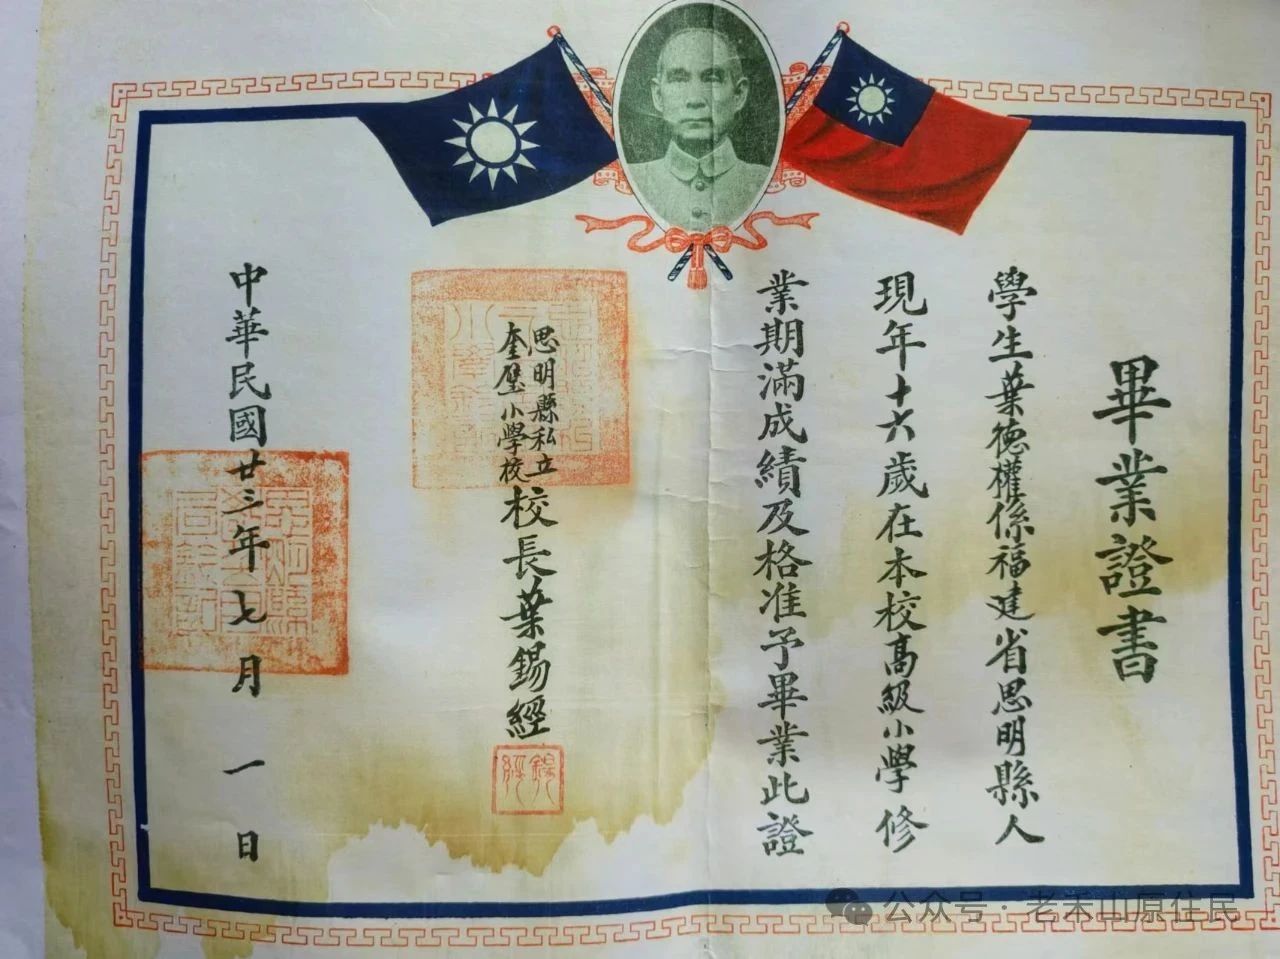 畢業證書
學生葉德權係福建省思明縣人
現年十六歲在本校高級小學修
業期滿成績及格准予畢業此證
思明縣私立
奎璧小學校
校長葉錫經
錫經
中華民國廿三年七月一日
公众号·老禾山原住民